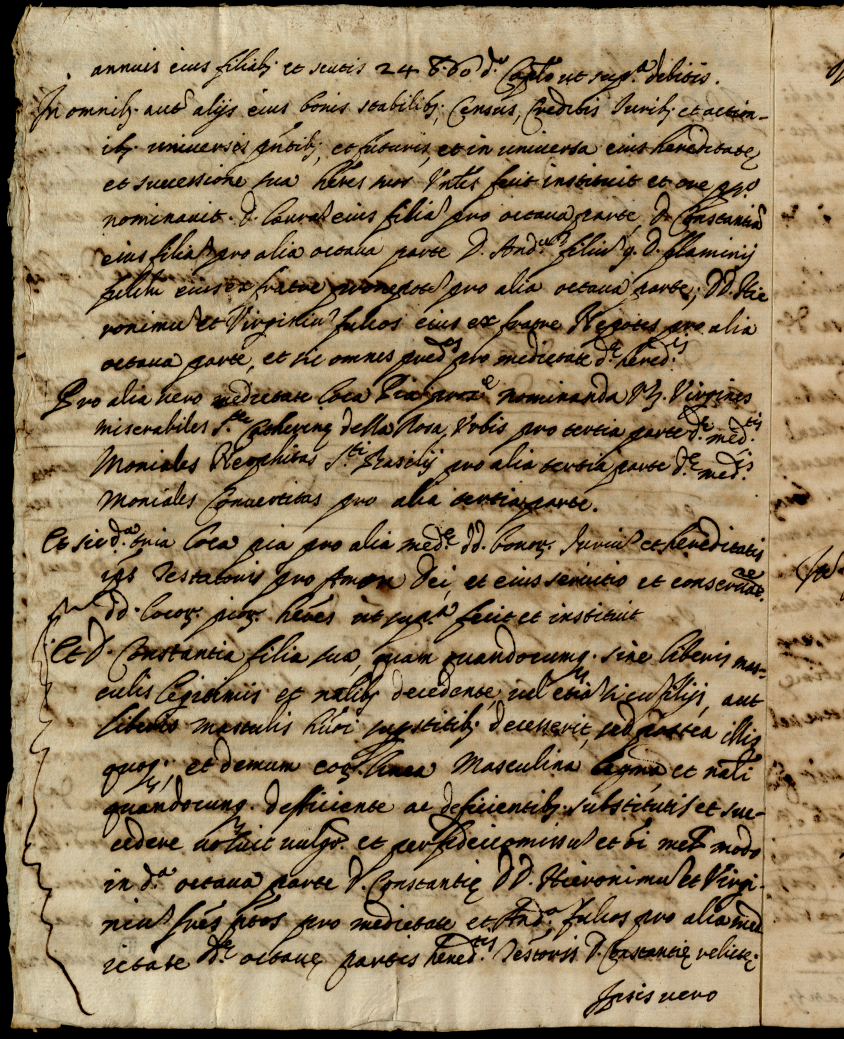 annuis eius filiab; et scutis 24 8.60 d.
ut sup.a debitis.
In omnib; aut alijs eius bonis stabilib; Censis, Creditis Iurib; et action-
ib; universis pntib; et futuris, et in universa eius hereditate
et successione sua hẽres suos fecit instituit et ore pp.o
nominavit. D. Laura eius filia pro octava parte, D. Constantia
eius filia pro alia octava parte D. And. filiu q. D. flaminij
filiu eius ex fratre pronepote pro alia octava parte; DD. Hie
ronimu et Virginiu fulios eius ex fratre Nepotes pro alia
octava parte, et sic omnes pred.os pro medietate d.e hered.is
Pro alia vero medietate loca Pia nominanda V3. Virgines
miserabiles S.te Catherine della Rosa, Urbis pro tertia parte d.e med.tis
Moniales Neophitas S.ti Basilij pro alia tertia parte d.e med.tis
Moniales Convertitas pro alia tertia parte.
Et sic d.a tria loca pia pro alia med.e dd. bonor. Iuriu et hereditatis
ips Testatoris pro Amore Dei, et eius servitio et conservat.
dd. locor. pior. hẽres ut sup.a fecit et instituit
Et D. Constantia filia sua, quam quandocunq. sine liberis mas-
culis legitimis et nalib; decedente, vel etia sicu filijs, aut
liberis masculis hmoi supstitib; decesserit, sed postea illis
quoq; et demum eor. linea Masculina legma et nali
quandocunq. defficiente ac deficientib; substitutis et suc-
cedere voluit vulgr. et per fideicomissu et oi mel. modo
in d.a octava parte D. Constantie DD. Hieronimu et Virgi-
niu frẽs ptos pro medietate et And. fulios pro alia med
ietate d.e octave partis hered.tis Testoris D. Constantie relicte.
Ipsis vero